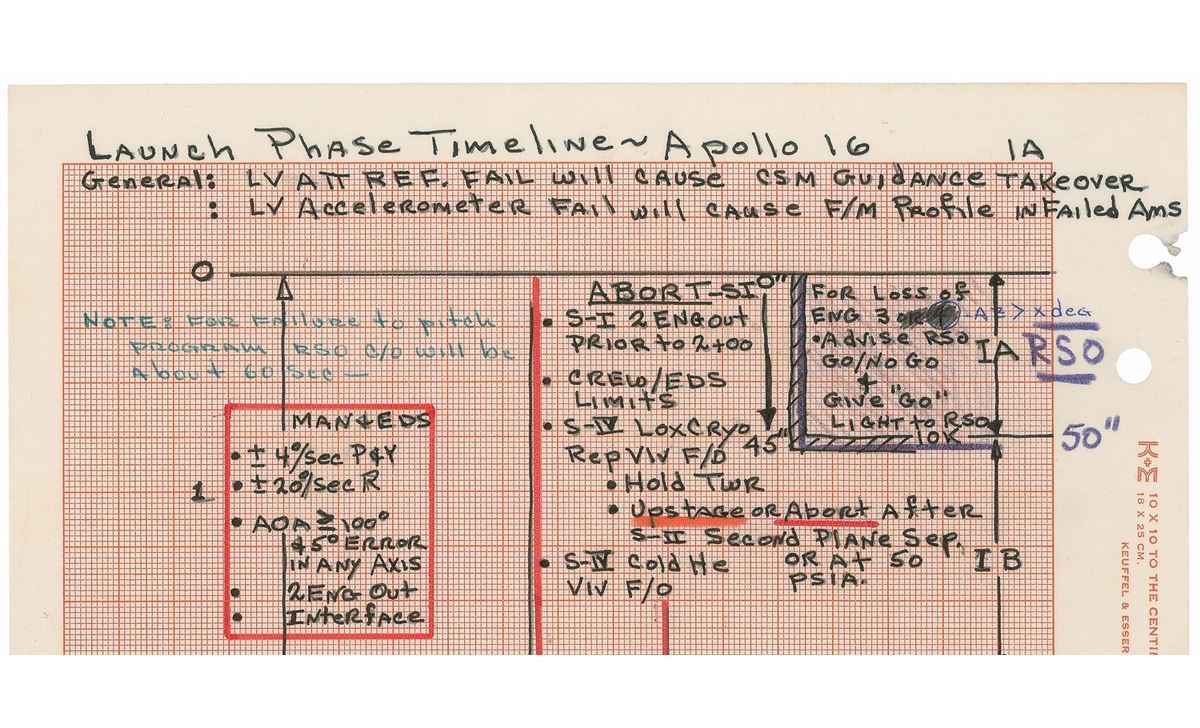 Launch Phase Timeline ~ Apollo 16 1A
General: LV ATT REF. FAIL will cause CSM Guidance Takeover
: LV Accelerometer Fail will cause F/M Profile in Failed Ams
0
NOTE: FOR Failure to pitch
PROGRAM RSO C/O will be
About 60 Sec —
MAN & EDS
• ± 4°/sec P&Y
• ± 20°/sec R
1
• AOA ≥ 100°
& 5° ERROR
IN ANY AXIS
• 2 ENG Out
• Interface
ABORT-SI
• S-I 2 ENG Out
PRIOR to 2+00
• CREW/EDS
LIMITS
• S-IV LOX Cryo
Rep Vlv F/O
• Hold TWR
• Upstage OR Abort After
S-II Second PLANE Sep.
OR At 50
PSIA.
• S-IV Cold He
Vlv F/O
0"
45"
FOR Loss of
ENG 3 or
• Advise RSO
GO/NO GO
+
GIVE "GO"
LIGHT to RSO
10K
> X deg
IA
RSO
50"
IB
K+E
10 X 10 TO THE CENTIM
18 X 25 CM.
KEUFFEL & ESSER